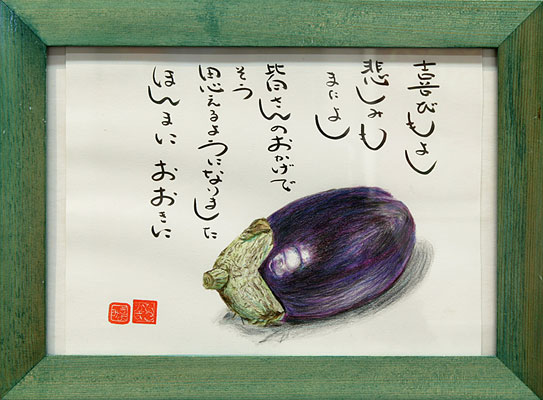 喜びもよし
悲しみも
またよし
皆さんのおかげで
そう
思えるようになりました
ほんまに おおきに